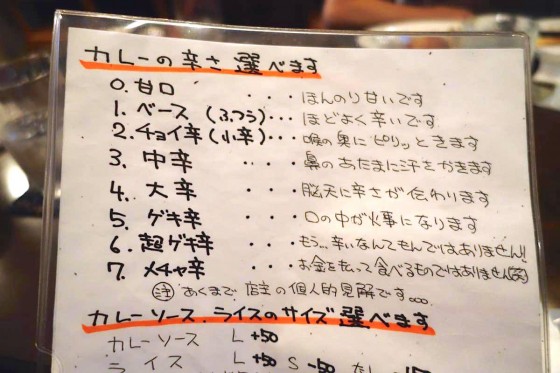 カレーの辛さ選べます
0. 甘口 ・・・ほんのり甘いです
1. ベース (ふつう)・・・ほどよく辛いです
2. チョイ辛(小辛)・・・喉の奥にピリッときます
3. 中辛 ・・・鼻のあたまに汗をかきます
4. 大辛 ・・・脳天に辛さが伝わります
5. ゲキ辛 ・・・口の中が火事になります
6. 超ゲキ辛 ・・・もう…辛いなんてもんではありません!!
7. メチャ辛 ・・・お金を払って食べるものではありません(笑)
注 あくまで店主の個人的見解です。。。
カレーソース、ライスのサイズ選べます
カレーソース L +50
ライス L +50 S -50